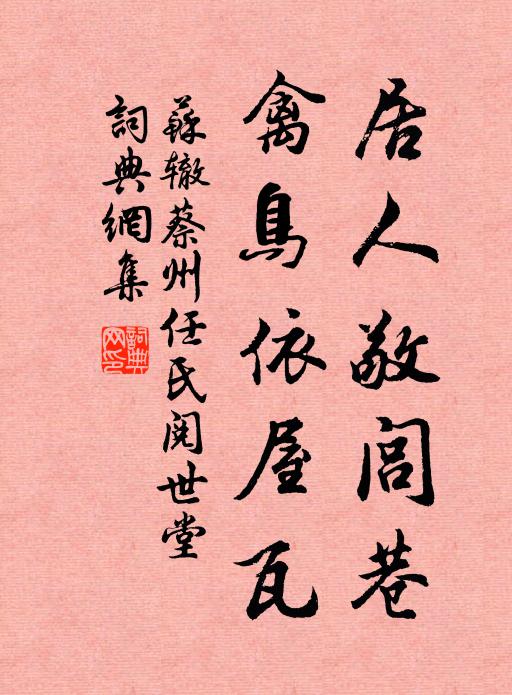 居人敬闾巷
禽鳥依屋瓦
蘇辙蔡州任氏閱世堂
詞典網集
詞典網印